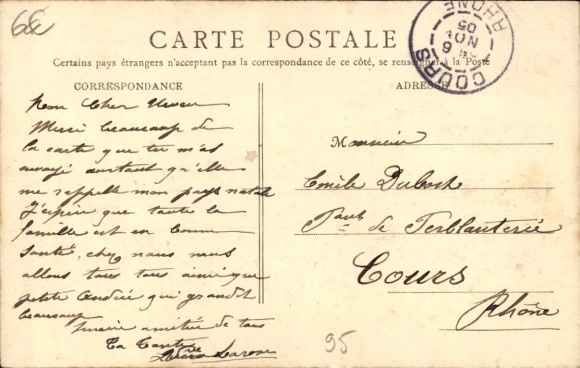 6€
CARTE POSTALE
Certains pays étrangers n'acceptant pas la correspondance de ce côté, se renseigner à la Poste
CORRESPONDANCE
ADRESSE
COURS
RHONE
6
NOV
05
Mon Cher Neveu
Merci beaucoup de
la carte que tu m'as
envoyé autant qu'elle
me rappelle mon pays natale
J'espère que toute la
famille est en bonne
santé, chez nous nous
allons tous tous ainsi que
petite Andrée qui grandit
beaucoup
amitiée de tous
Ta Tante
Larose
Monsieur
Emile Dubost
de Ferblanterie
Cours
Rhône
95